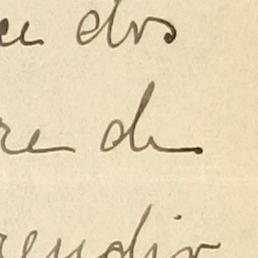 ce dos
re de
rendir